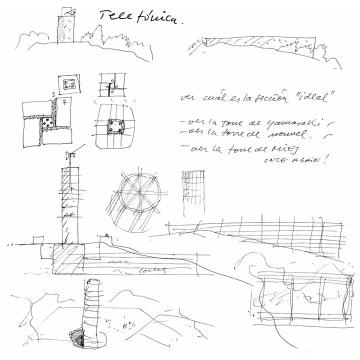 Telefónica.
ver cuál es la sección "ideal"
- ver la torre de yamasaki
- ver la torre de nouvel.
- ver la torre de MIES
ONCE AGAIN!